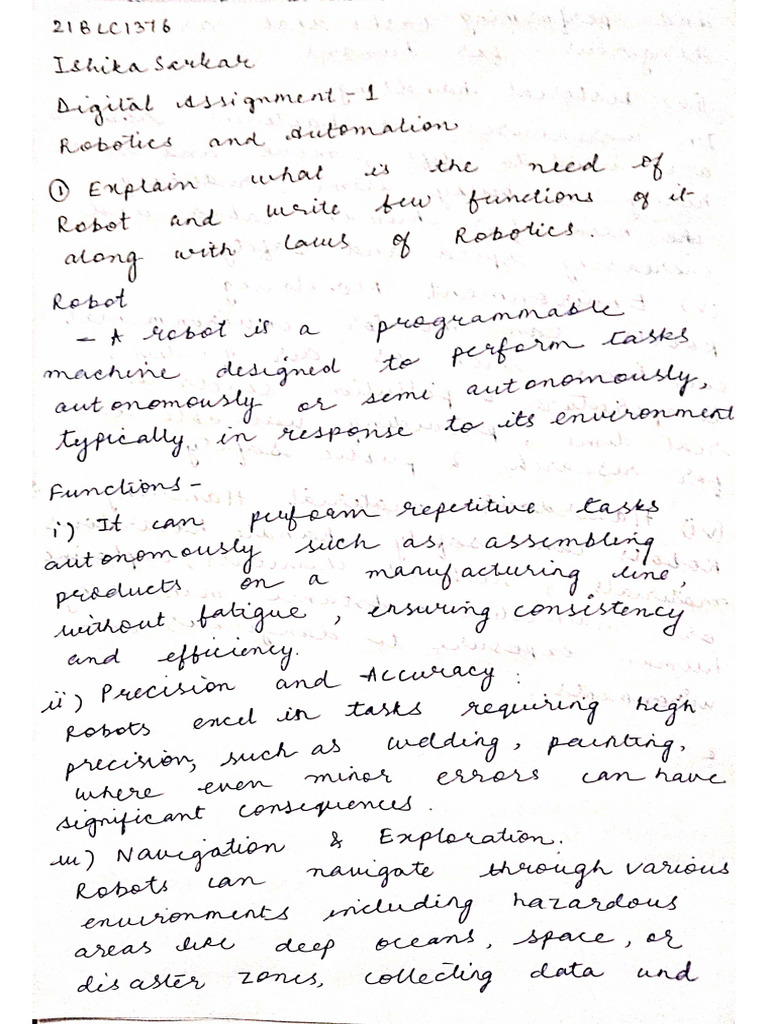 21BLC1376
Ishika Sarkar
Digital Assignment - 1
Robotics and Automation
① Explain what is the need of
Robot and write few functions of it
along with laws of Robotics.
Robot
- A robot is a programmable
machine designed to perform tasks
autonomously or semi autonomously,
typically in response to its environment
Functions -
i) It can perform repetitive tasks
autonomously such as assembling
products on a manufacturing line,
without fatigue, ensuring consistency
and efficiency.
ii) Precision and Accuracy :
Robots excel in tasks requiring high
precision, such as welding, painting,
where even minor errors can have
significant consequences.
iii) Navigation & Exploration.
Robots can navigate through various
environments including hazardous
areas like deep oceans, space, or
disaster zones, collecting data and